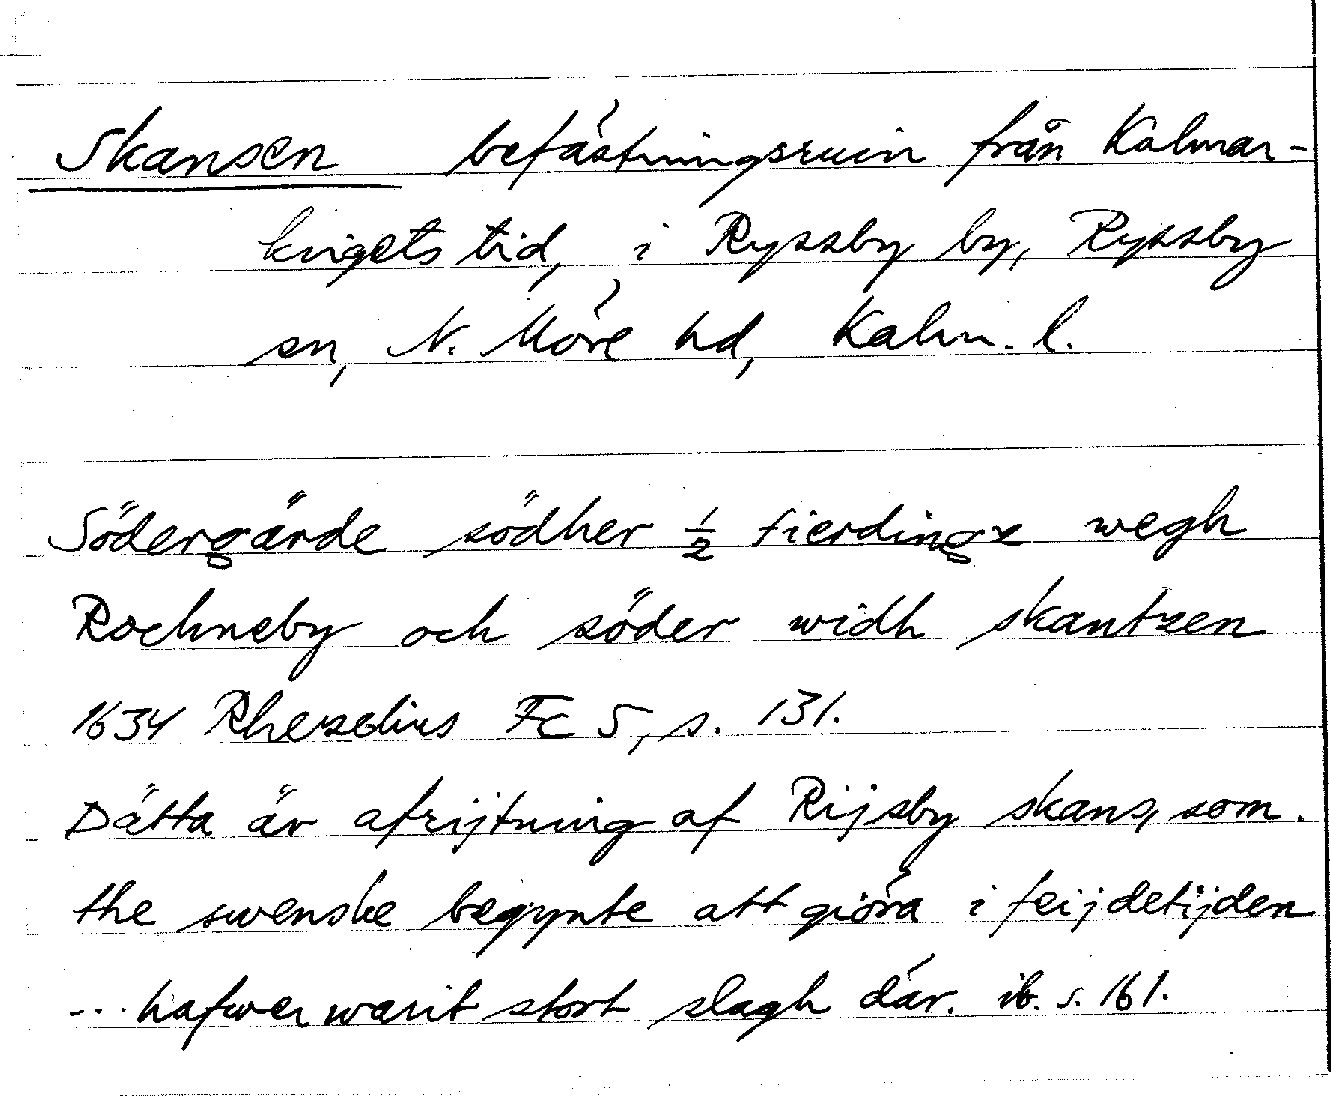 Skansen befästningsruin från Kalmar-
krigets tid, i Ryssby by, Ryssby
sn, N. Möre hd, Kalm. l.
Södergärde södher ½ fierdings wegh
Rochneby och söder widh skantzen
1634 Rhezelius Fc 5, s. 131.
Dätta är afrijtning af Rijsby skans, som
the swenske begynte att giöra i feijdetijden
... hafwer warit stort slagh där. ib. s. 161.